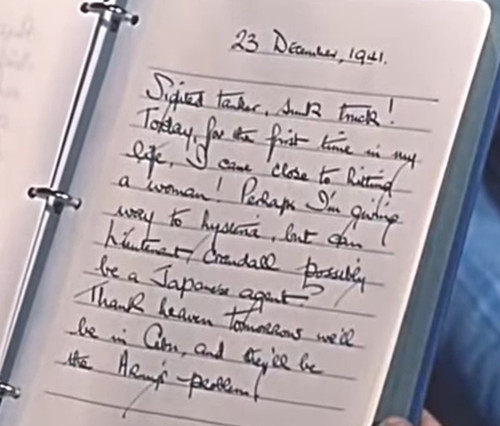 23 December, 1941.
Sighted tanker, sunk truck!
Today, for the first time in my
life, I came close to hitting
a woman! Perhaps I'm giving
way to hysteria, but can
Lieutenant Crandall possibly
be a Japanese agent?
Thank heaven tomorrow we'll
be in Cebu, and they'll be
the Army's problem!